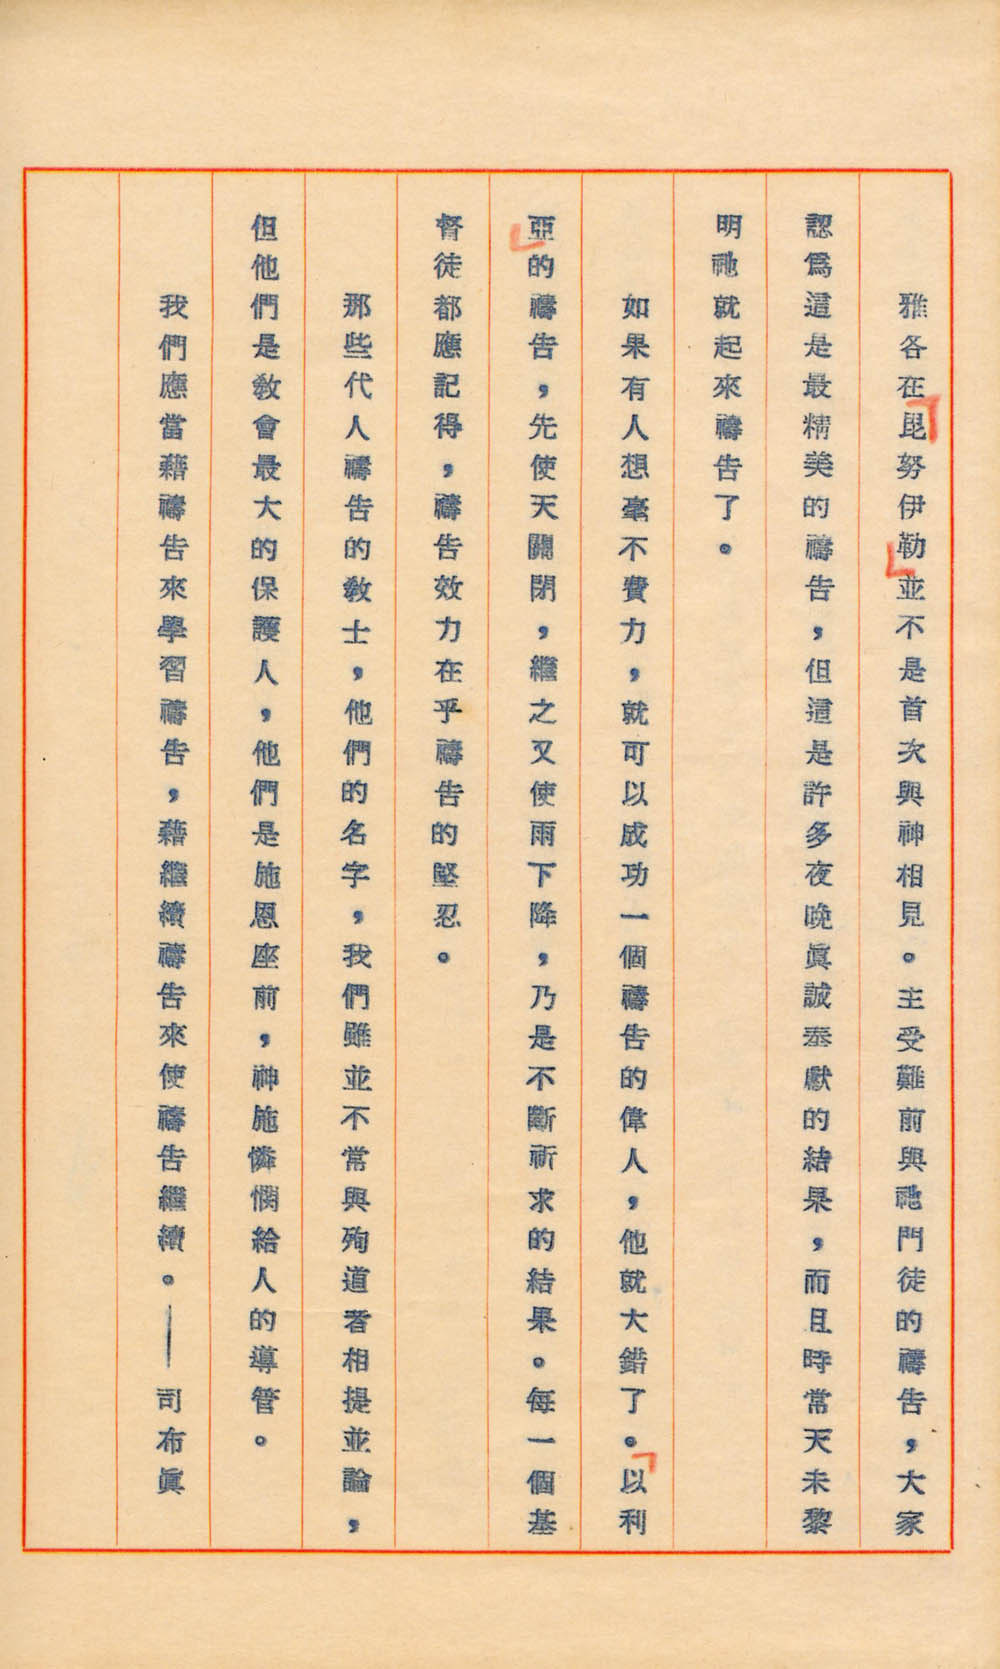 雅各在「毘努伊勒」並不是首次與神相見。主受難前與祂門徒的禱告，大家
認爲這是最精美的禱告，但這是許多夜晚眞誠奉獻的結果，而且時常天未黎
明祂就起來禱告了。
如果有人想毫不費力，就可以成功一個禱告的偉人，他就大錯了。「以利
亞」的禱告，先使天關閉，繼之又使雨下降，乃是不斷祈求的結果。每一個基
督徒都應記得，禱告效力在乎禱告的堅忍。
那些代人禱告的教士，他們的名字，我們雖並不常與殉道者相提並論，
但他們是教會最大的保護人，他們是施恩座前，神施憐憫給人的導管。
我們應當藉禱告來學習禱告，藉繼續禱告來使禱告繼續。——司布眞